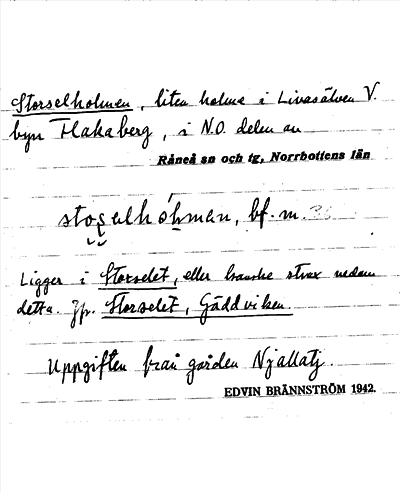 Storselholmen, liten holme i Livasälven V.
byn Flakaberg, i N.O. delen av
Råneå sn och tg, Norrbottens län
stoșelhó̩hmen, bf. m.
Ligger i Storselet, eller kanske strax nedan
detta. Jfr. Storselet, Gäddviken.
Uppgiften från gården Njallatj.
EDVIN BRÄNNSTRÖM 1942.